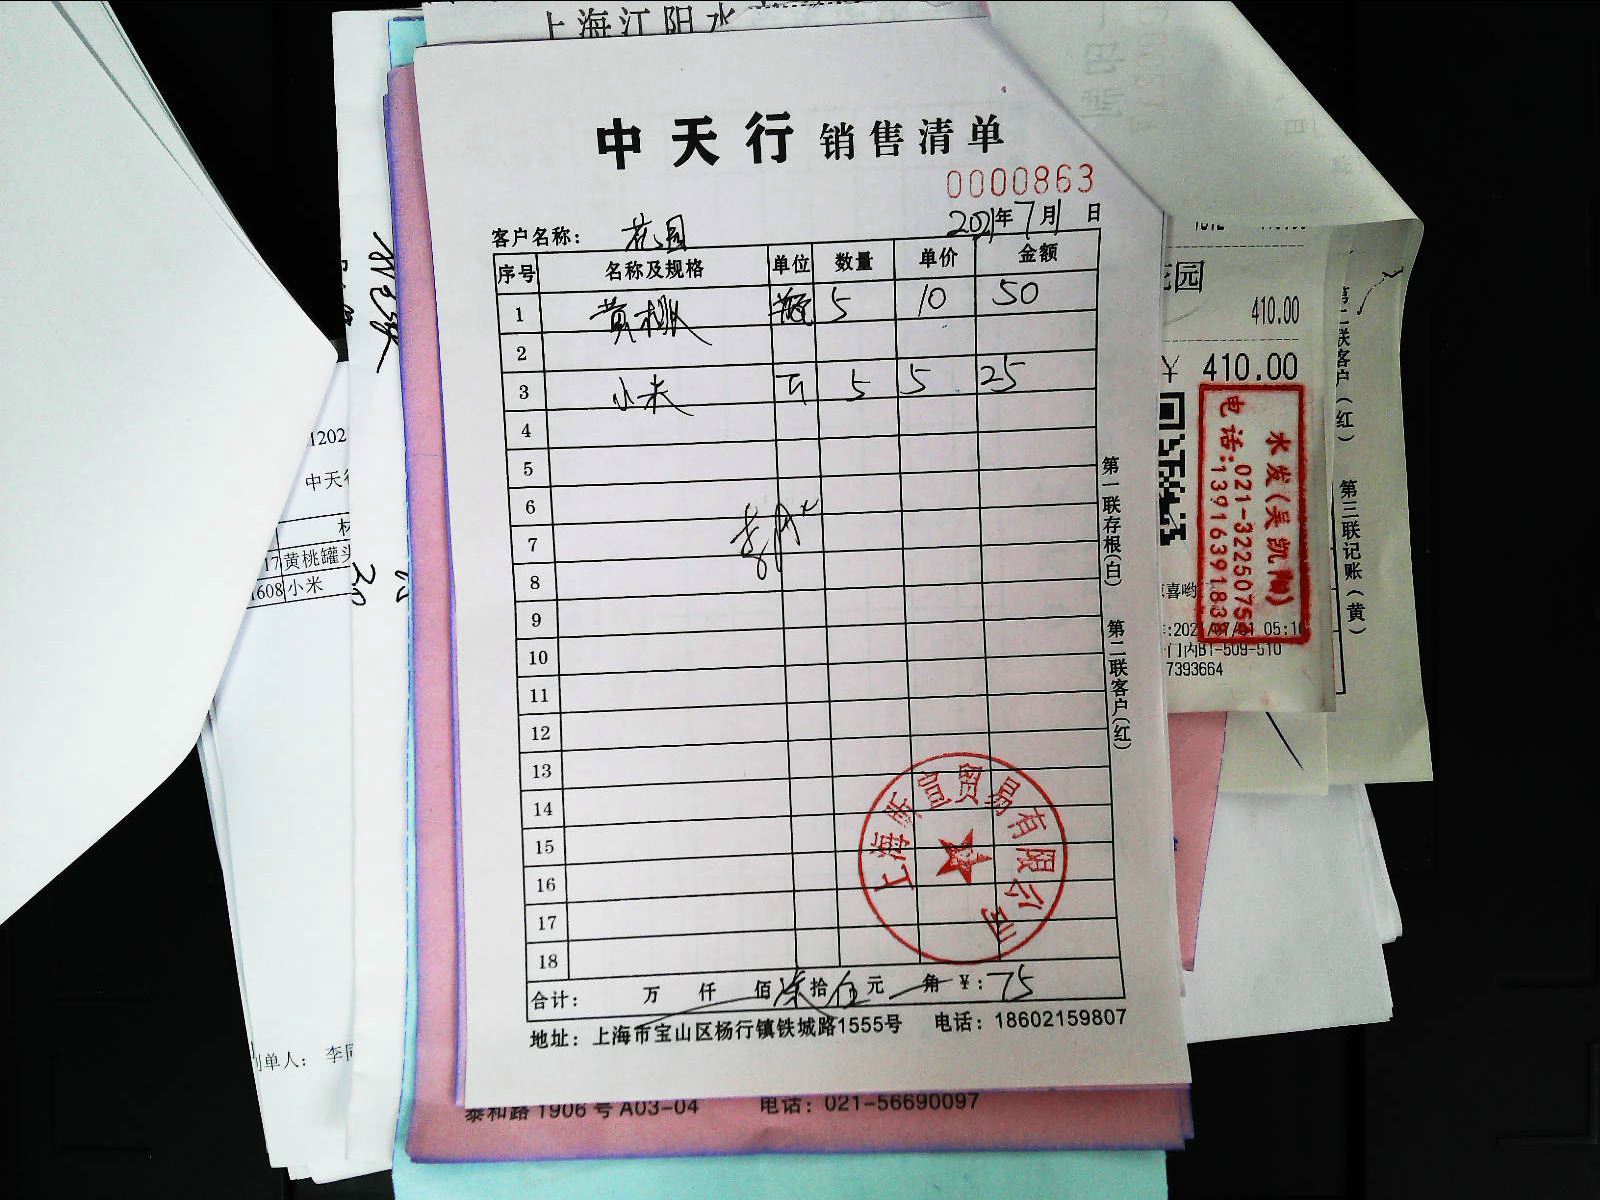 上海江阳水
中天行 销售清单
0000863
客户名称: 花园 2021年7月1日
序号 名称及规格 单位 数量 单价 金额
1 黄桃 瓶 5 10 50
2
3 小米 斤 5 5 25
4
5
6
7
8
9
10
11
12
13
14
15
16
17
18
合计: 万 仟 佰 柒拾伍元 角 ¥: 75
地址: 上海市宝山区杨行镇铁城路1555号 电话: 18602159807
第一联存根(白) 第二联客户(红)
贸易有限公司
上海
泰和路1906号A03-04 电话: 021-56690097
花园
410.00
¥ 410.00
水发(吴凯
电话:021-3225075
:13916391838
05:1
门内B1-509-510
7393664
第二联客户(红) 第三联记账(黄)
1202
中天行
17 黄桃罐头
1608 小米
制单人: 李